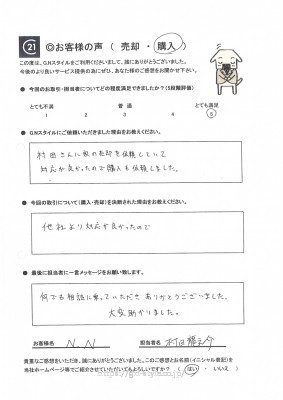 21 ◎お客様の声 ( 売却 ・ 購入 )
この度は、G.Nスタイルをご利用くださいまして、誠にありがとうございました。
今後のより良いサービス提供の為にぜひ、あなた様のご感想をお聞かせ下さい。
● 今回のお取引・担当者についてどの程度満足できましたか？(5段階評価)
とても不満 普通 とても満足
1 2 3 4 5
● G.Nスタイルにご依頼いただきました理由をお教えください。
村田さんに家の売却を依頼していて
対応が良かったので購入も依頼しました。
● 今回の取引について(購入・売却)を決断された理由をお教えください。
他社より対応が良かったので
● 最後に担当者に一言メッセージをお願い致します。
何でも相談に乗っていただき ありがとうございました。
大変助かりました。
お客様名 N.N 担当者名 村田
貴重なご感想をいただき、誠にありがとうございました。このご感想とお名前(イニシャル表記)を
当社ホームページ等でご紹介させていただいてもよろしいですか？ ( はい ・ いいえ )